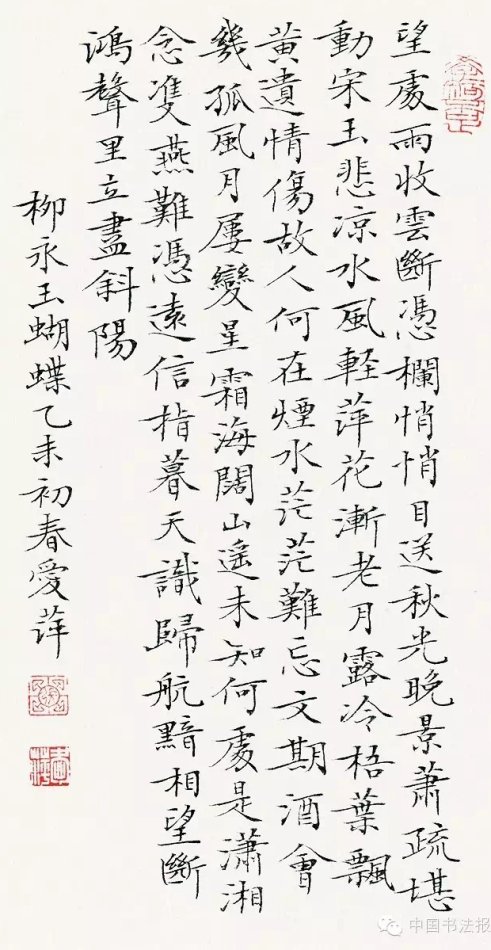 望處雨收雲斷憑欄悄悄目送秋光晚景蕭疏堪
動宋玉悲凉水風軽萍花漸老月露冷梧葉飄
黃遺情傷故人何在煙水茫茫難忘文期酒會
幾孤風月屢變星霜海闊山遥未知何處是瀟湘
念雙燕難憑遠信指暮天識歸航黯相望斷
鴻聲里立盡斜陽
柳永玉蝴蝶乙未初春愛萍
中国书法报